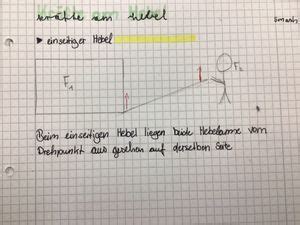 Kräfte am Hebel
► einseitiger Hebel
F₁
F₂
Beim einseitigen Hebel liegen beide Hebelarme vom
Drehpunkt aus gesehen auf derselben Seite